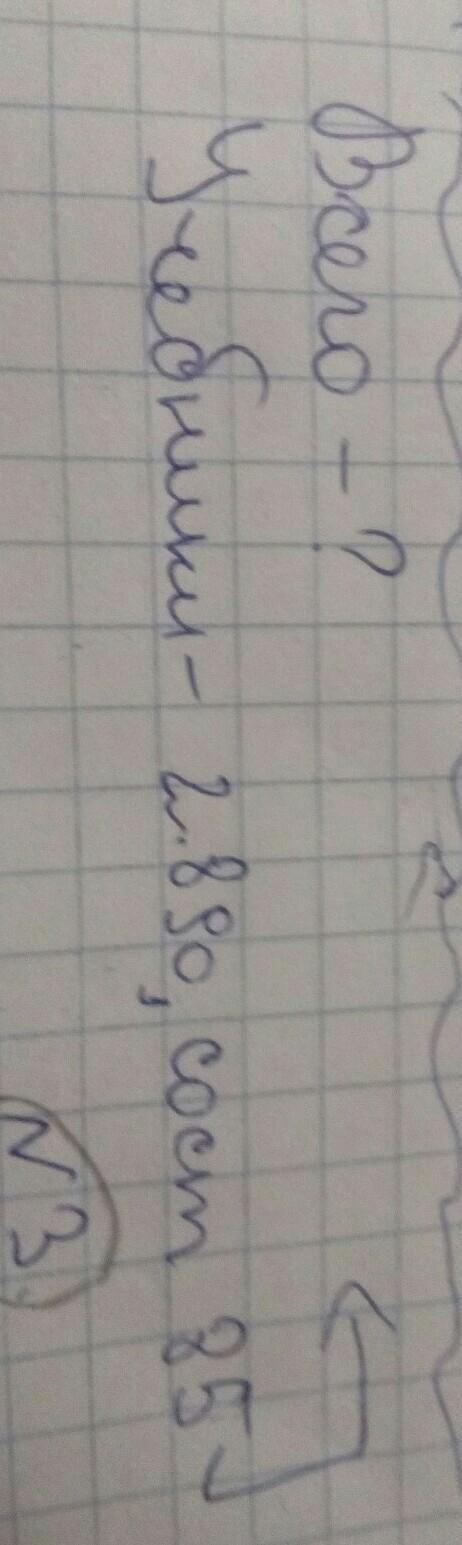 Всего - ?
Учебники - 2.890, сост 85
N3